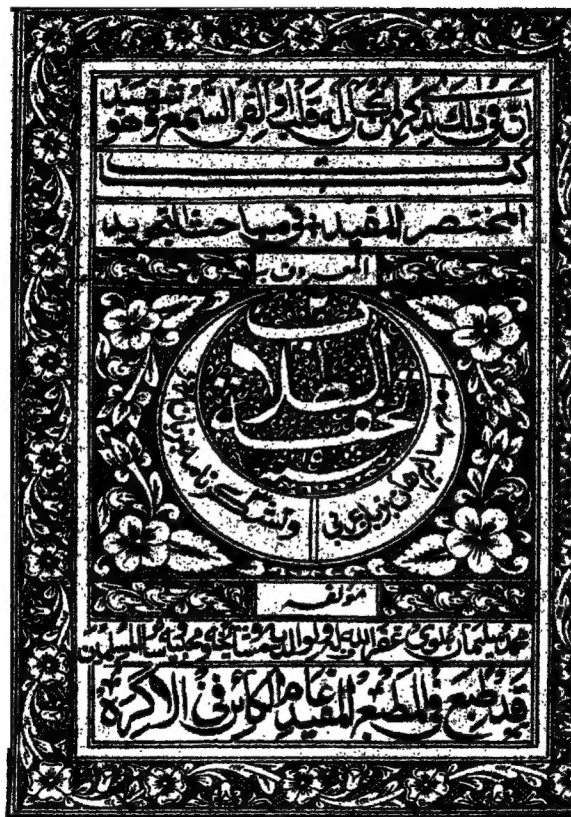 إن في ذلك لذكرى لمن كان له قلب أو ألقى السمع وهو شهيد
كتاب
المختصر المفيد في مباحث التجريد
المعروف به
تحفة الطلاب
مؤلفه
محمد سليمان علوي غفر الله له ولوالديه ومشايخه ومحبيه وسائر المسلمين
قد طبع في المطبع المفيد عام الكائن في الاكرة